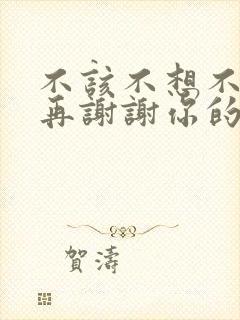 不該不想不
再謝謝你的
賀濤